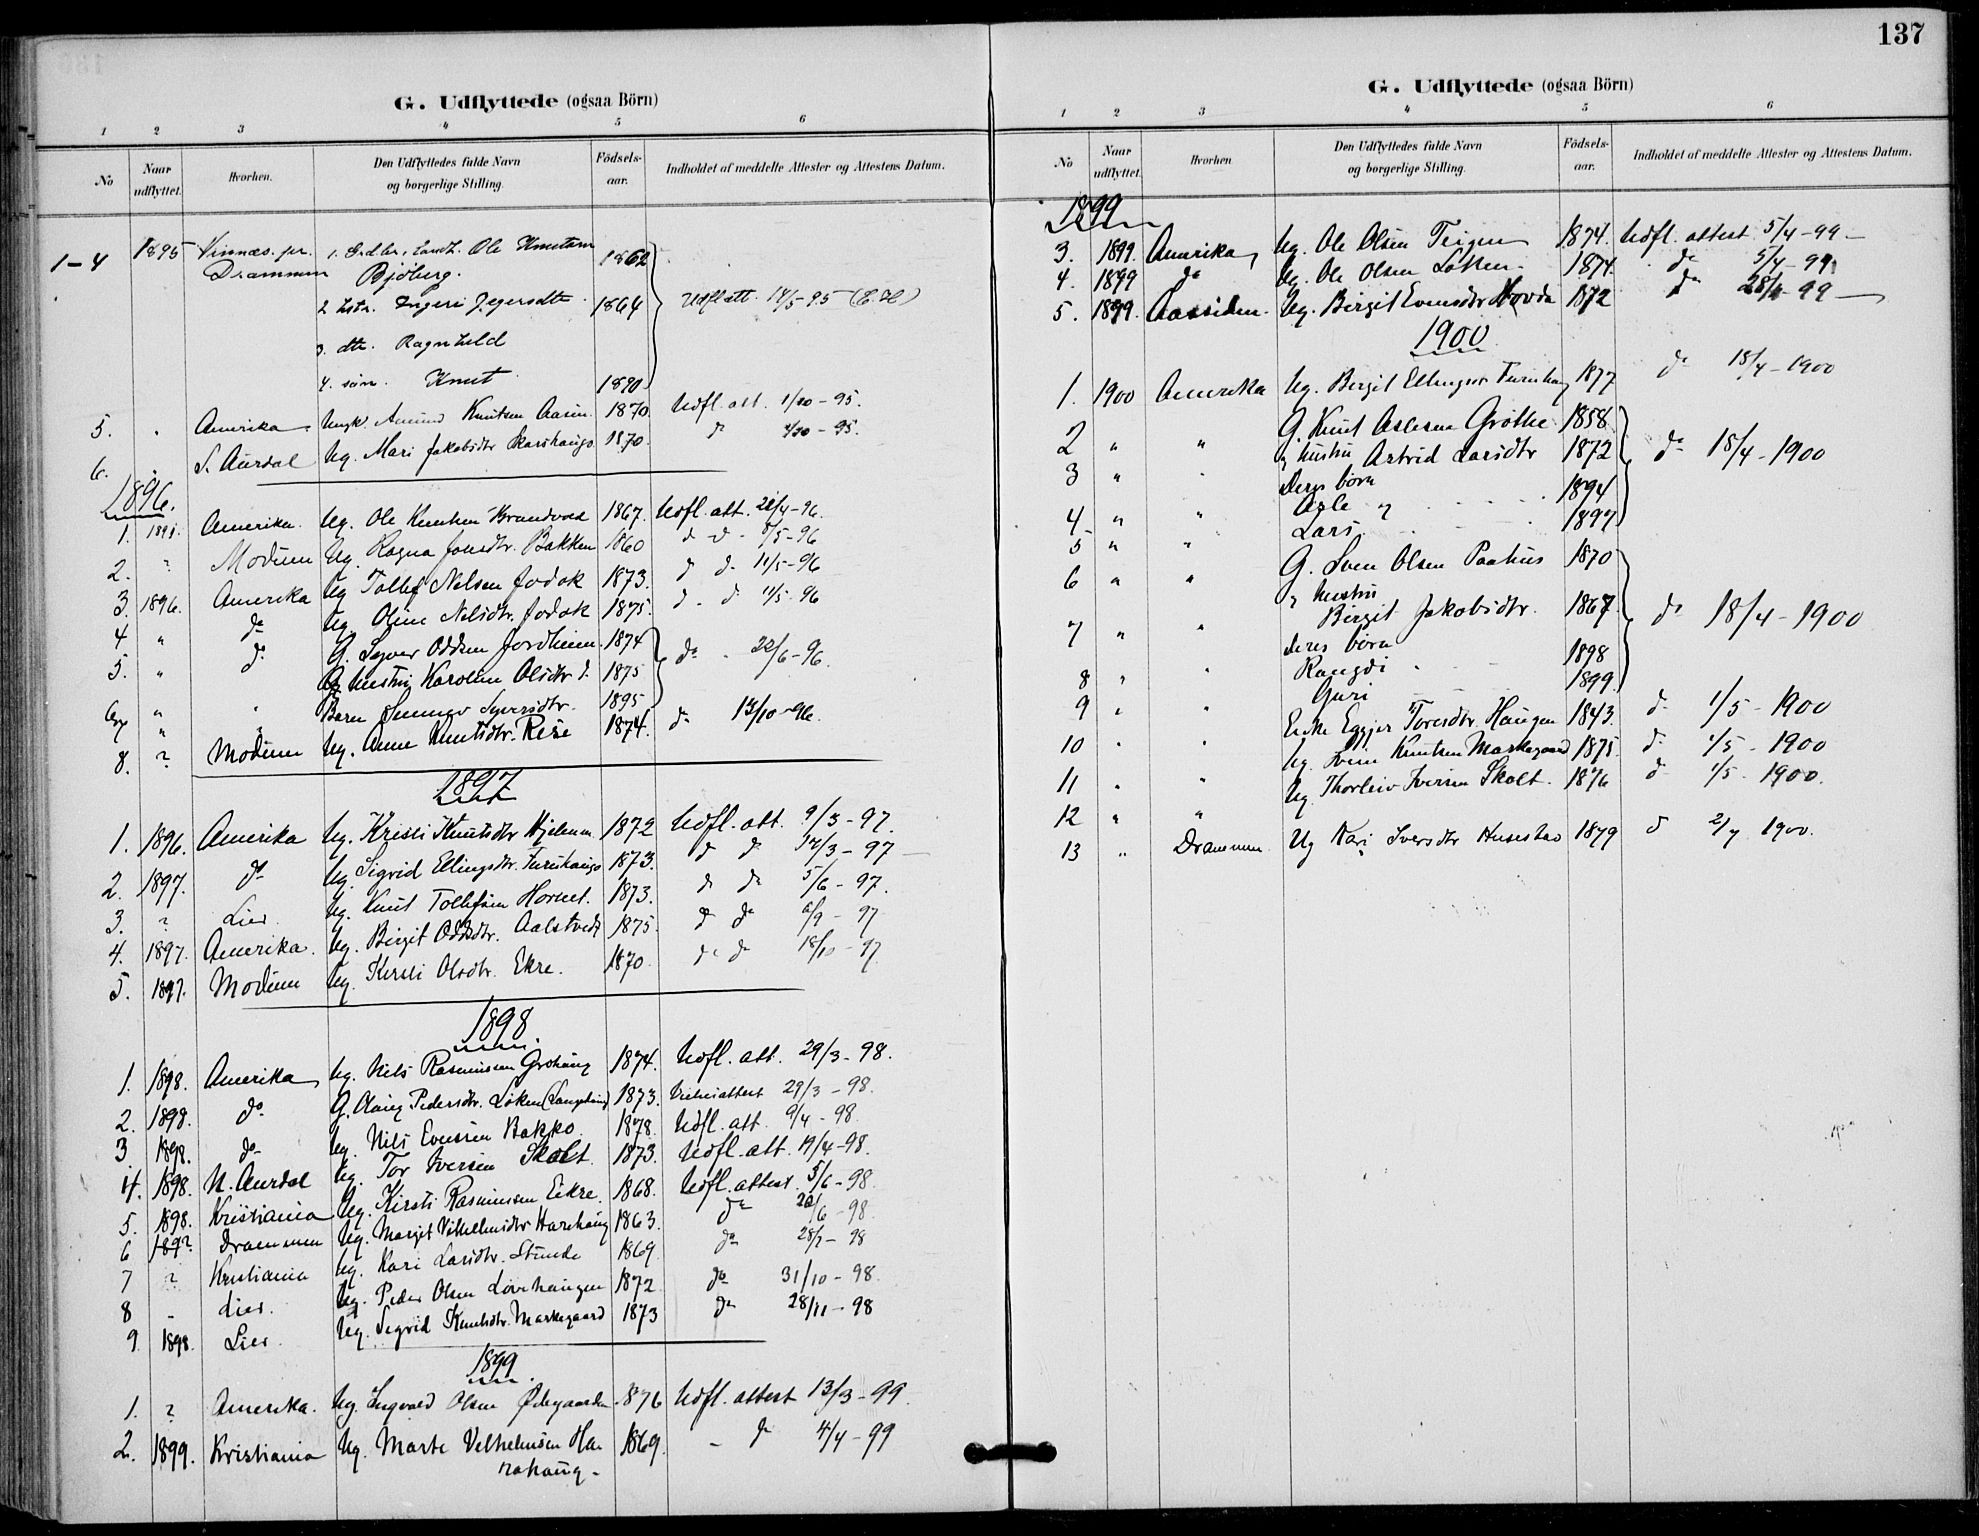 G. Udflyttede (ogsaa Börn)
1 2 3 4 5 6
No Naar udflyttet. Hvorhen. Den Udflyttedes fulde Navn og borgerlige Stilling. Födsels-aar. Indholdet af meddelte Attester og Attestens Datum.
1-4 1895 Vinnæs pr. 1. Ole Knutsen 1862
Drammen Bjöberg.
2 Ingeri 1864 Udfl att. 14/5-95
3. dtr. Ragnhild
4. sön. Knut 1890
5. " Amerika Ungk. Amund Knutsen 1870. Udfl. att. 95.
6. " S. Aurdal Ug. Mari Jakobsdtr. 1870. do 95.
1896.
1. Amerika. Ug. Ole Knutsen Brandvold 1867. Udfl. att. 96.
2. ? Modum Ug. Ragna Bakken 1860 d d 8/5-96
3. 1896. Amerika Ug. Tollef Nelsen Jodok 1873. d d 11/5-96
4 " do Ug. Oline Nelsdtr. Jodok 1875. d d 11/5-96
5. " do G. Syver Oddsen Jordheim 1874 do 22/6-96.
6 " " Hustru Karoline Olsdtr. 1875
7 " " Barn Syversdtr. 1895
8. ? Modum Ug. Anne Knutsdtr. 1874. do 13/10-96.
1897
1. 1896. Amerika Ug. Kristi Knutsdtr 1872 Udfl. att. 9/3-97.
2. 1897. do Ug. Sigrid Ellingsdtr. Furuhaug 1873. d d 97
3. ? Lier Ug. Knut Tollefsen 1873. d do 5/6-97.
4. 1897. Amerika. Ug. Birgit Oddsdtr. 1875. do do 97
5. 1897. Modum Ug. Kirsti Olsdtr. Ekre. 1870. do do 18/10-97
1898
1. 1898. Amerika Ug. Nils Rasmussen Grohaug 1874. Udfl. att. 29/3-98.
2. 1898. do G. Pedersdtr. Loken 1873. 29/3-98.
3 1898. do Ug. Nils Evensen Bakko 1878. Udfl. att. 9/4-98.
4. 1898. N. Aurdal Ug. Tor Iversen Skolt. 1873. Udfl. att. 19/4-98.
5. 1898. Kristiania Ug. Kirsti Rasmussen Eikre. 1868. Udfl. attest. 5/6-98.
6 Drammen Ug. Margit Vilhelmsdtr Harehaug 1863. do 98.
7 ? Kristiania Ug. Kari Larsdtr. 1869 do 98
8 - Lier. Ug. Peder Olsen Lövehaugen 1872 do 31/10-98.
9 1898. Lier. Ug. Sigrid Knutsdtr. Markegaard 1873 do 28/11-98
1899
1. ? Amerika. Ug. Ingvald Olsen Ödegaarden 876 Udfl. attest 13/3-99.
2. 1899. Kristiania Ug. Marte Vilhelmsen Ha- 1869. - do 4/4-99
rahaug.
137
G. Udflyttede (ogsaa Börn)
1 2 3 4 5 6
No Naar udflyttet. Hvorhen Den Udflyttedes fulde Navn og borgerlige Stilling. Födsels-aar. Indholdet af meddelte Attester og Attestens Datum.
1899
3. 1899. Amerika, Ug. Ole Olsen Teigen 1874. Udfl. attest 5/4-99
4. 1899 do Ug. Ole Olsen Lökken 1874. do 5/4-99.
5. 1899. Aassiden. Ug. Birgit Evensdtr Hovda 1872 do 99
1900
1. 1900 Amerika Ug. Birgit Ellingsdr Furuhaug 1877 do 18/4-1900
2 " " G. Knut Aslesen Gröthe 1858.
3 " " hustru Astrid Larsdtr 1872 do 18/4-1900
Deres børn
4 " " Asle 1894
5 " " Lars 1897
6 " " G. Sven Olsen Paahus 1870
" hustru
7 " " Birgit Jakobsdtr. 1867 do 18/4-1900
deres børn
8 " " Rangdi 1898
9 " " Guri 1899.
10 " " Enke Eggjer Toresdtr. Haugen 1843. do 1/5-1900
11 " " Ug. Svein Knutsen Markegaard 1875. do 1/5-1900
12 " " Ug. Thorleiv Iversen Skolt. 1876 do 1/5-1900.
13 " Drammen Ug Kari Iversdtr 1879 d 2/7 1900.